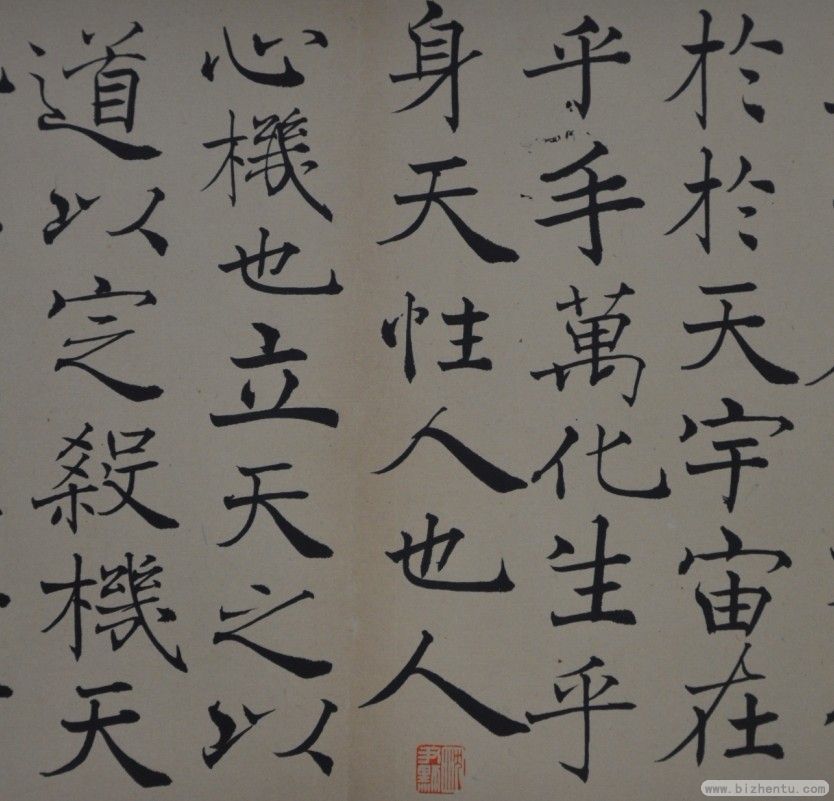 於於天宇宙在
乎手萬化生乎
身天性人也人
心機也立天之以
道以定殺機天
www.bizhentu.com